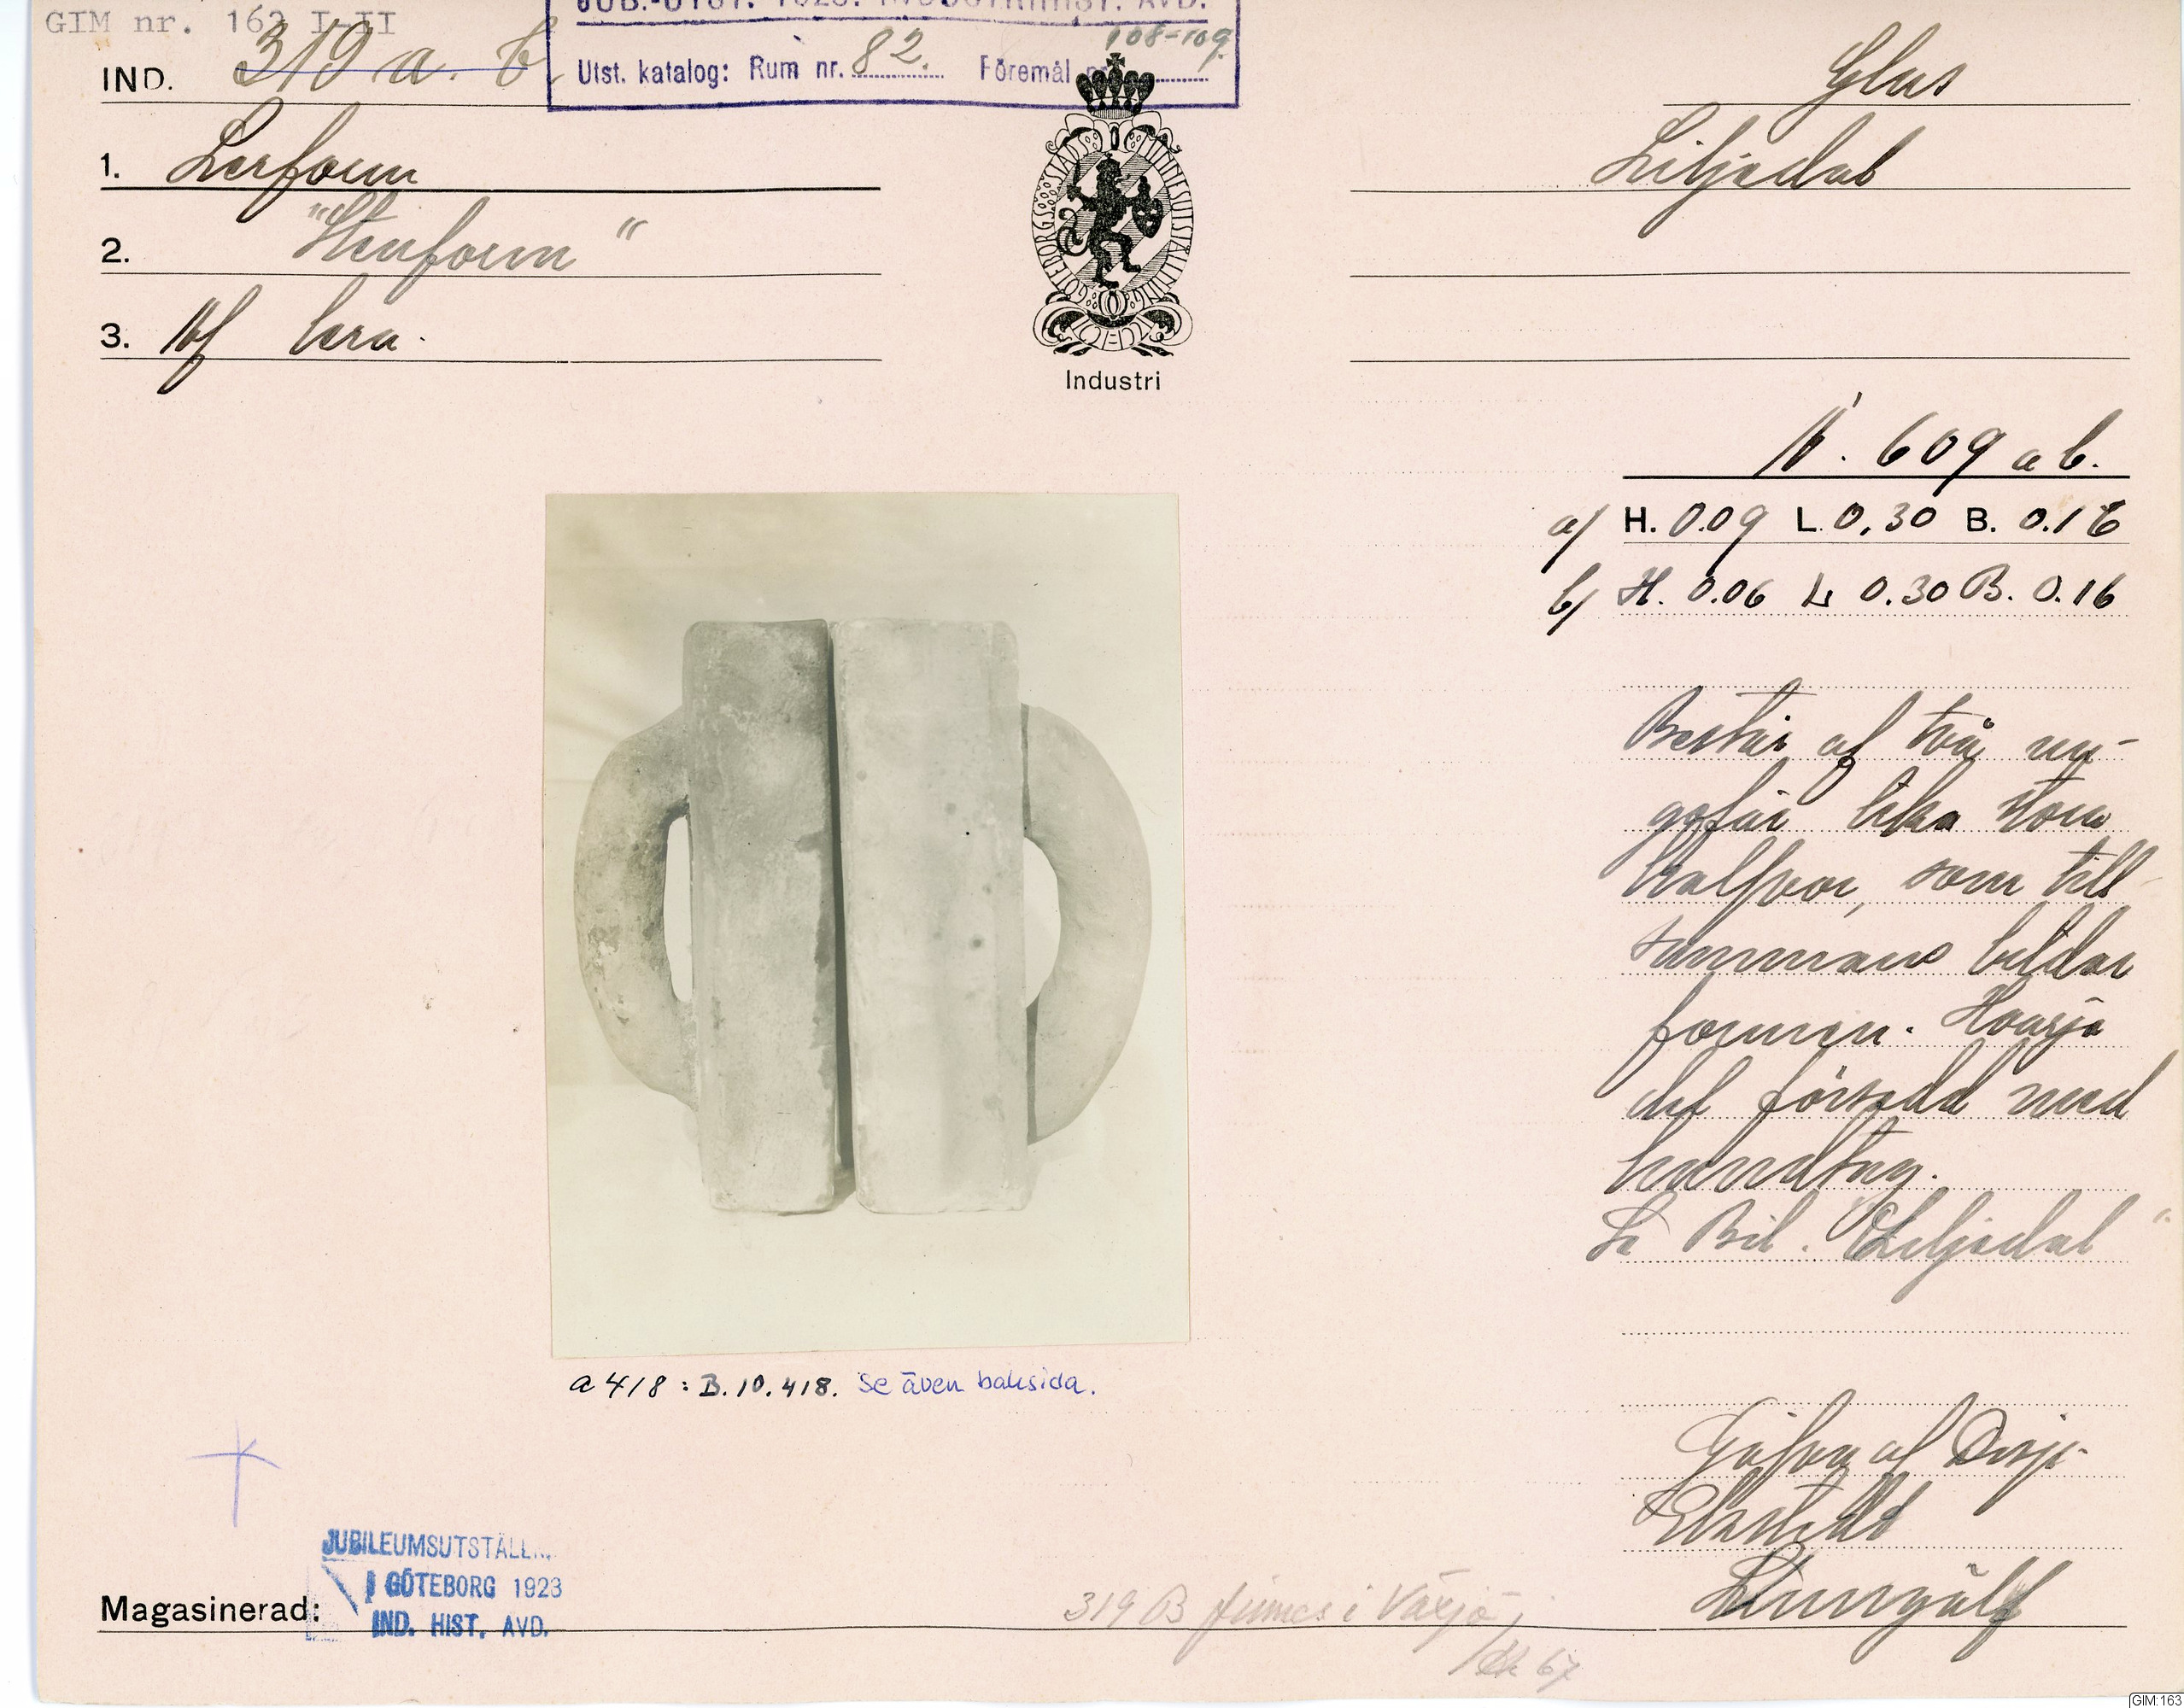 GIM nr. 163 I-II
JUB.-UTST. 1923. INDUSTRIHIST. AVD.
IND. 319 a. b.
Utst. katalog: Rum nr. 82. Föremål nr. 108-109.
Glas
1. Lerform
Liljedal
2. "Stenform"
3. Af lera.
GÖTEBORGS STADS MINNESUTSTÄLLNING
Industri
A. 609 a b.
a) H. 0.09 L. 0,30 B. 0.16
b) H. 0.06 L 0.30 B. 0.16
Består af två un-
gefär lika stora
halfvor, som till-
sammans bildar
formen. Hvarje
del försedd med
handtag.
Se Bil. "Liljedal"
a 418 : B.10.418. Se även baksida.
Gåfva af Disp.
Ekstedt
JUBILEUMSUTSTÄLLN.
I GÖTEBORG 1923
IND. HIST. AVD.
Magasinerad:
319 B finnes i Växjö
67
GIM:163